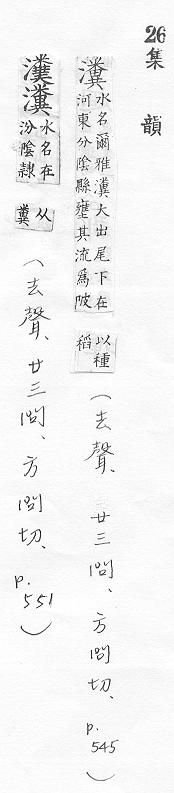 26 集韻
瀵 水名爾雅瀵大出尾下在河東汾陰縣壅其流爲陂以種稻(去聲、廿三問、方問切、p. 545)
瀵 水名在汾陰隸从糞(去聲、廿三問、方問切、p. 551)